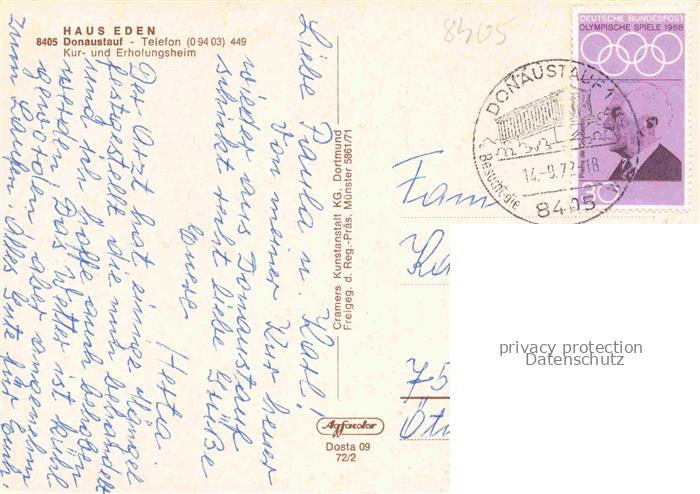 HAUS EDEN
8405 Donaustauf - Telefon (0 94 03) 449
Kur- und Erholungsheim
8405
DEUTSCHE BUNDESPOST
OLYMPISCHE SPIELE 1968
30
DONAUSTAUF 1
14.-9.72-18
Besucht die
8405
Liebe Paula u. Karl!
Von meiner Kur heuer
wieder aus Donaustauf
schickt recht liebe Grüße
Euere
Herta.
Der Arzt hat einige Mängel
festgestellt die nun behandelt
und ich hoffe auch behoben
werden. Das Wetter ist kühl
geworden aber angenehm
zum Laufen. Alles Gute für Euch.
Cramers Kunstanstalt KG. Dortmund
Freigeg. d. Reg.-Präs. Münster 5861/71
Fam
75
Agfacolor
Dosta 09
72/2
privacy protection
Datenschutz